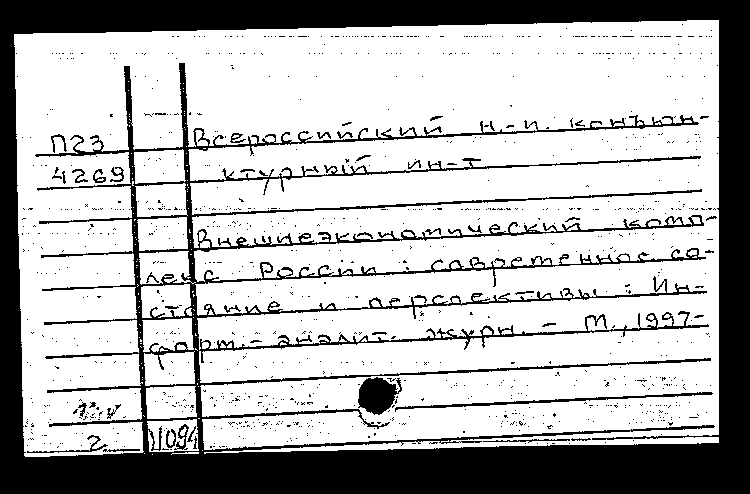 П23 Всероссийский н.-и. конъюн-
4269 ктурный ин-т
Внешнеэкономический комп-
лекс России : современное со-
стояние и перспективы : Ин-
форм.- аналит. журн. - М., 1997-
2 11094